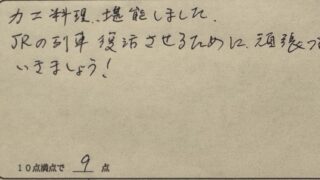 カニ料理、堪能しました。
JRの列車復活させるために、頑張って
いきましょう!
10点満点で 9 点